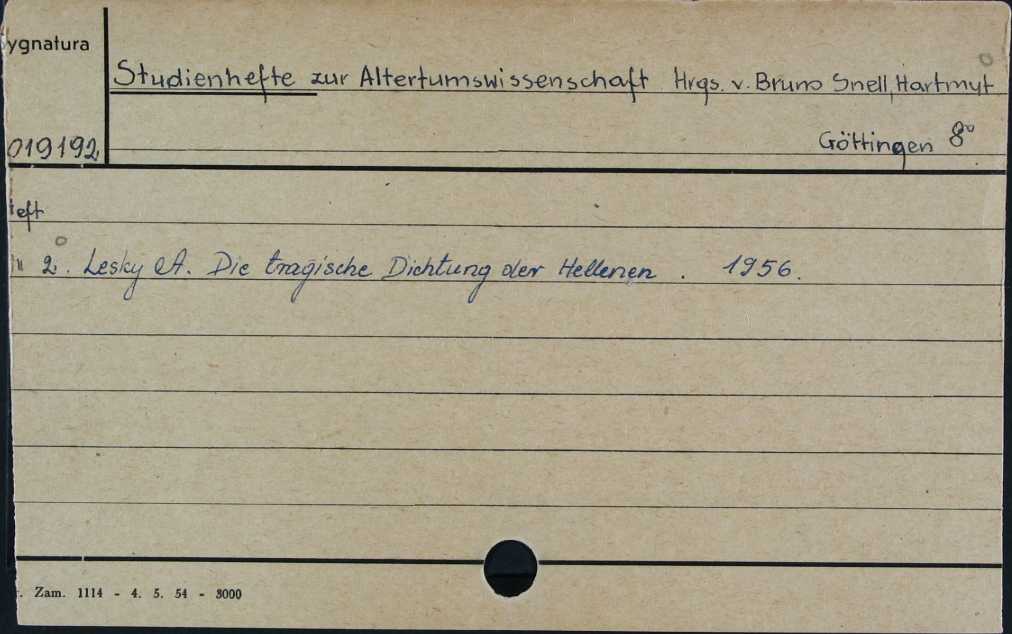 ygnatura
Studienhefte zur Altertumswissenschaft Hrgs. v. Bruno Snell, Hartmut
019192
Göttingen 8°
eft
2. Lesky A. Die tragische Dichtung der Hellenen. 1956.
Zam. 1114 - 4. 5. 54 - 3000